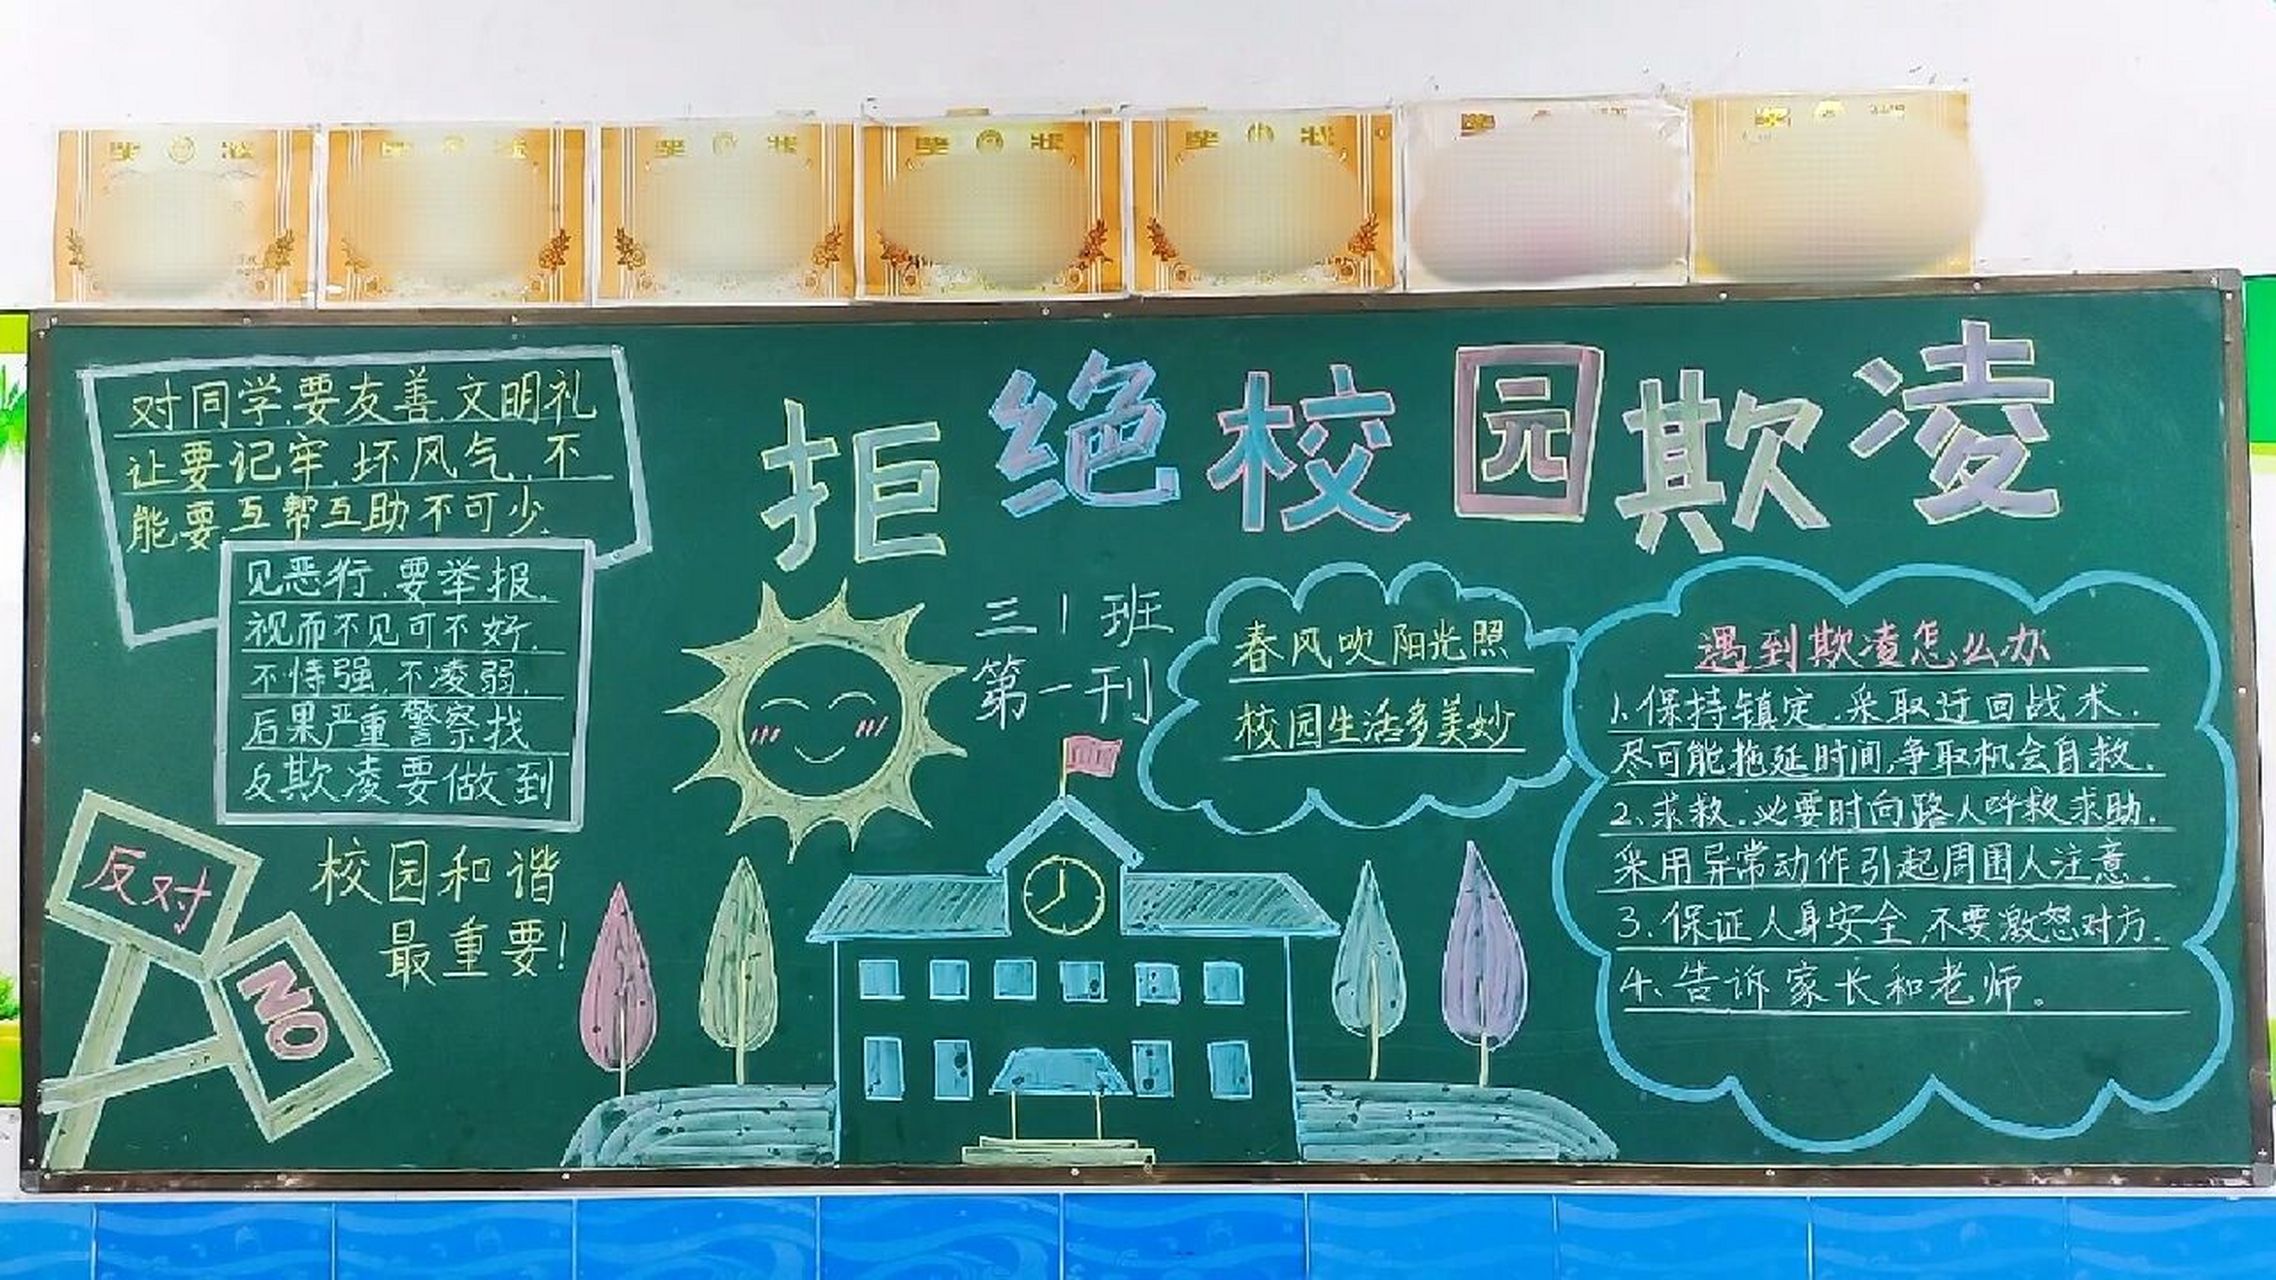 奖 状
奖 状
奖 状
奖 状
奖 状
奖
奖
拒绝校园欺凌
对同学,要友善,文明礼
让要记牢,坏风气,不
能要,互帮互助不可少.
见恶行,要举报.
视而不见可不好.
不恃强,不凌弱.
后果严重警察找
反欺凌要做到
反对
NO
校园和谐
最重要!
三1班
第一刊
春风吹阳光照
校园生活多美妙
遇到欺凌怎么办
1.保持镇定.采取迂回战术.
尽可能拖延时间,争取机会自救.
2、求救.必要时向路人呼救求助.
采用异常动作引起周围人注意.
3.保证人身安全,不要激怒对方.
4、告诉家长和老师。